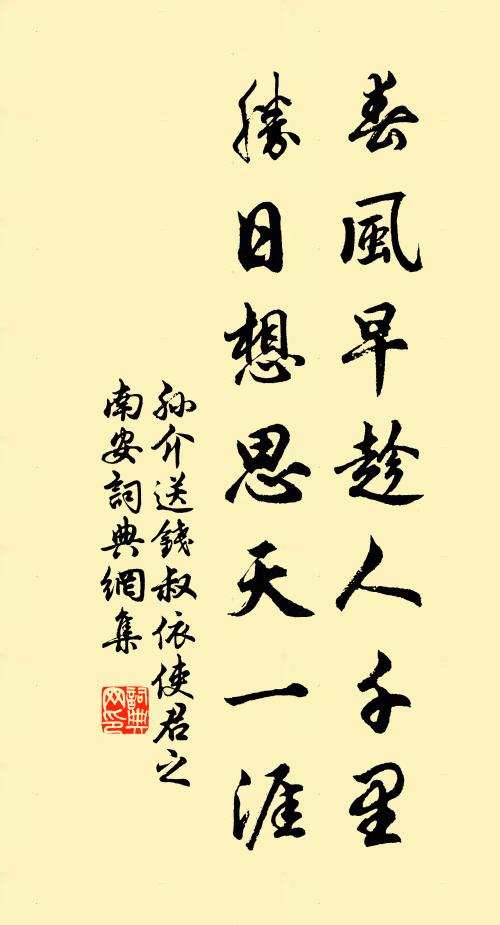 春風早趁人千里
勝日想思天一涯
孫介送錢叔依使君之
南安詞典網集
詞典
网印